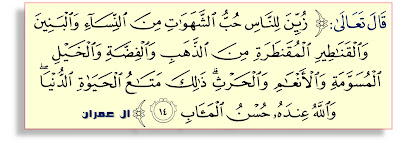 قَالَ تَعَالَىٰ: ﴿ زُيِّنَ لِلنَّاسِ حُبُّ ٱلشَّهَوَٰتِ مِنَ ٱلنِّسَآءِ وَٱلْبَنِينَ
وَٱلْقَنَٰطِيرِ ٱلْمُقَنطَرَةِ مِنَ ٱلذَّهَبِ وَٱلْفِضَّةِ وَٱلْخَيْلِ
ٱلْمُسَوَّمَةِ وَٱلْأَنْعَٰمِ وَٱلْحَرْثِ ۗ ذَٰلِكَ مَتَٰعُ ٱلْحَيَوٰةِ ٱلدُّنْيَا ۖ
وَٱللَّهُ عِندَهُۥ حُسْنُ ٱلْمَـَٔابِ ١٤ ﴾ ال عمران